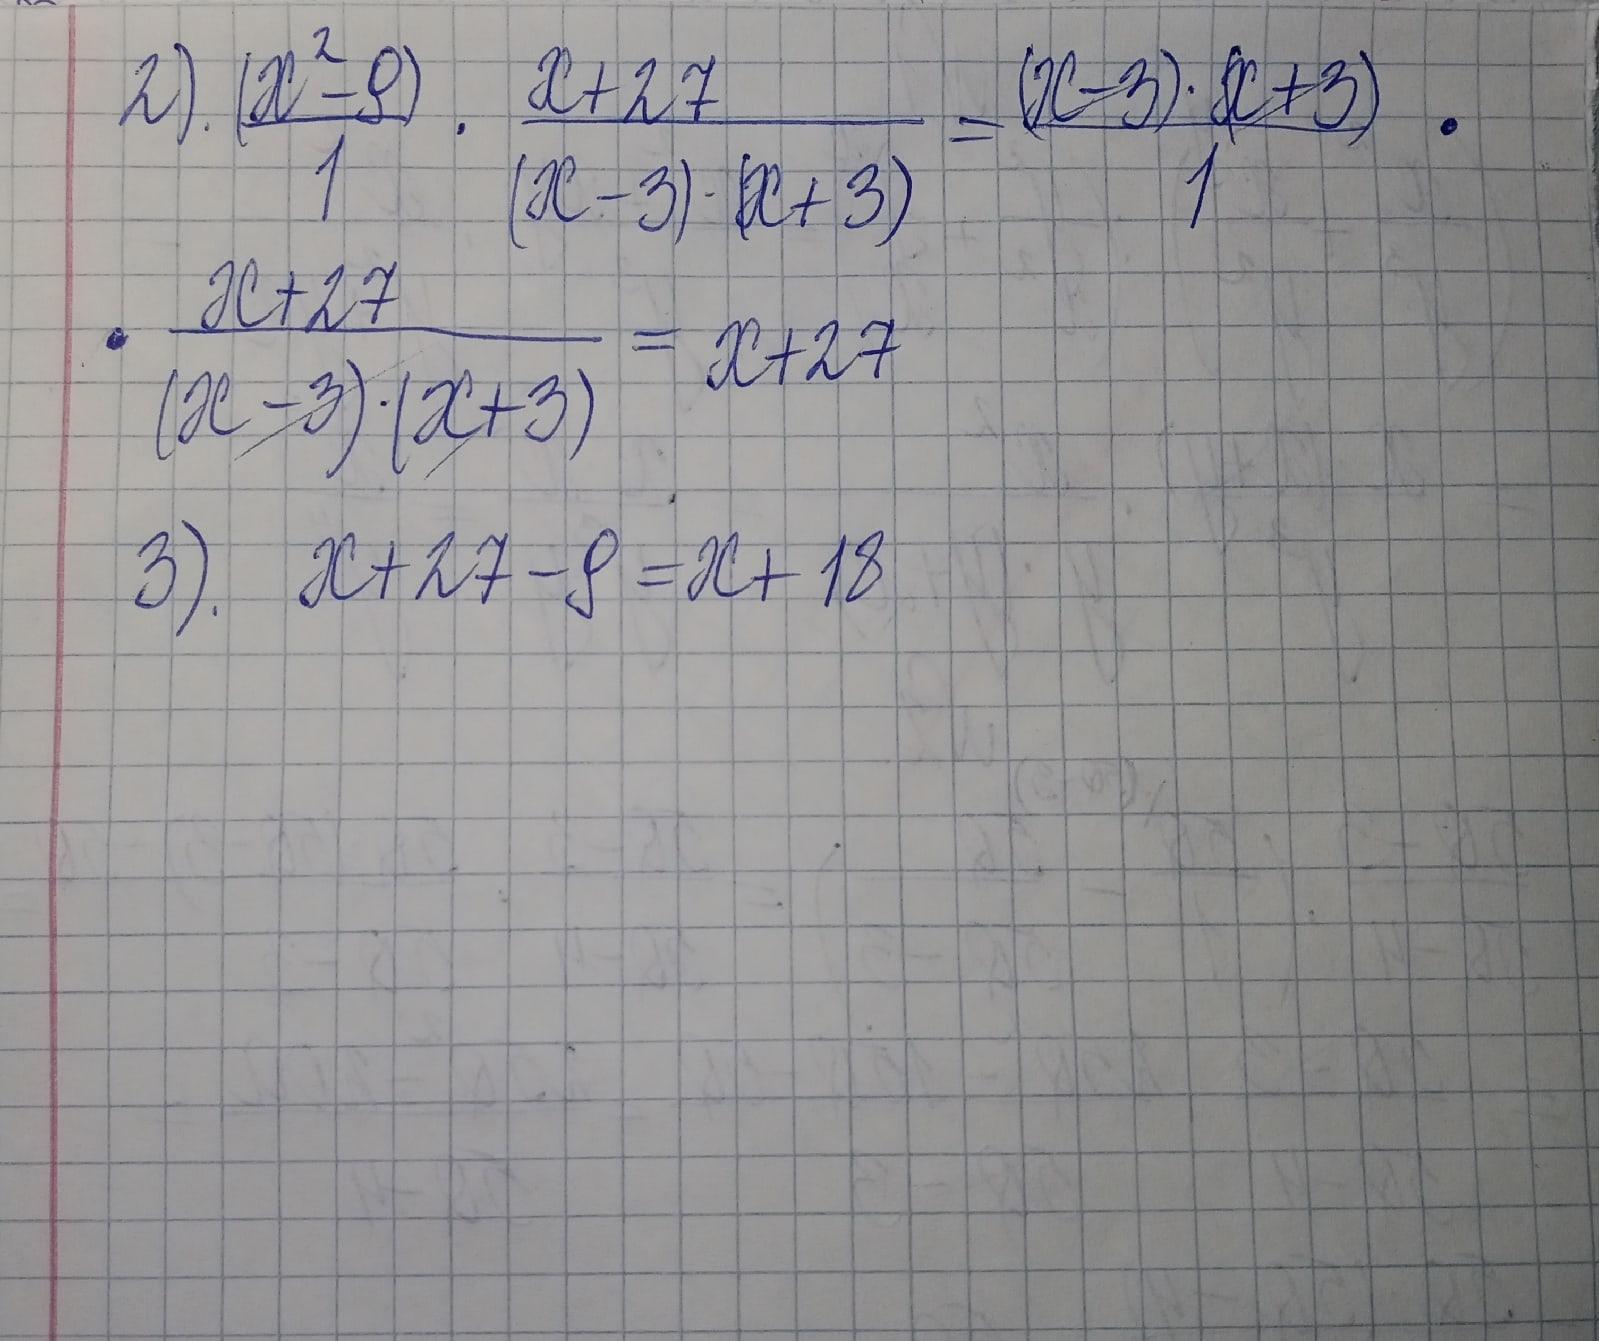 2). (x²-9)/1 · x+27/(x-3)·(x+3) = (x-3)·(x+3)/1 ·
· x+27/(x-3)·(x+3) = x+27
3). x+27-9=x+18